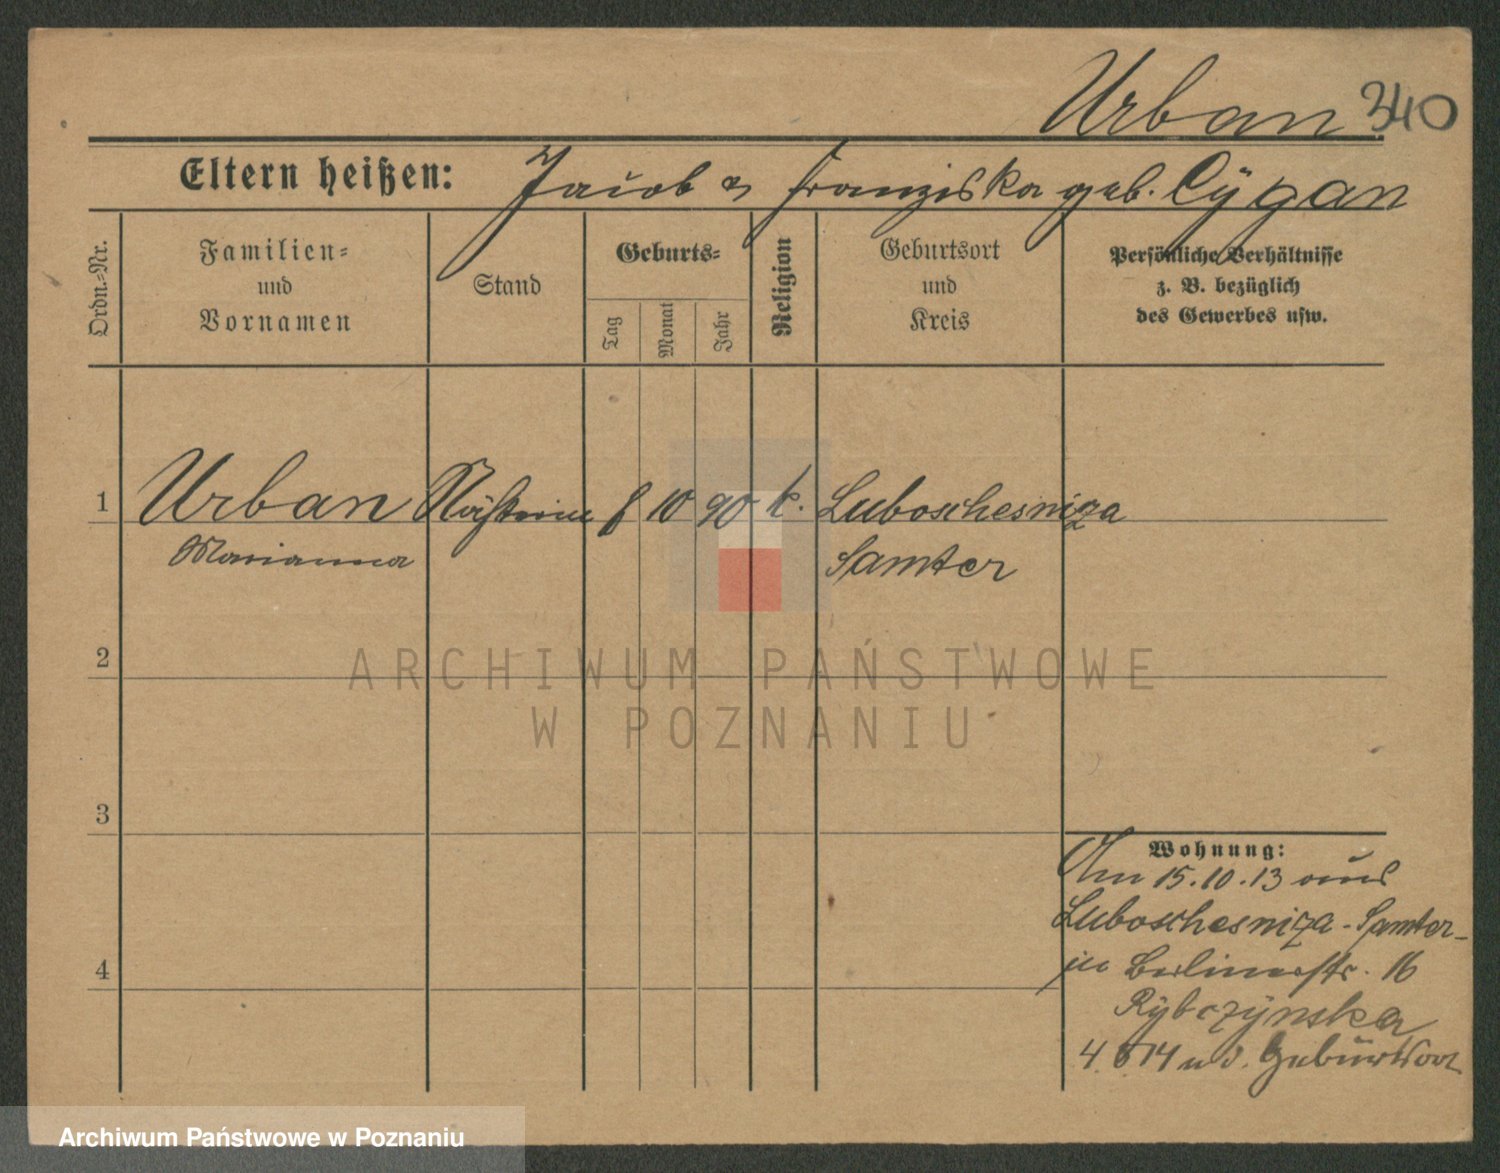 Urban 340
Eltern heißen: Jacob u Franziska geb. Cÿgan
Ordn.-Nr.
Familien- und Vornamen
Stand
Geburts-
Tag
Monat
Jahr
Religion
Geburtsort und Kreis
Persönliche Verhältnisse
z. B. bezüglich
des Gewerbes usw.
1 Urban Nähterin 8 10 90 k. Luboschesniza
Marianna Samter
2
3
4
Wohnung:
Am 15.10.13 aus
Luboschesniza-Samter-
in Berlinerstr. 16
Rÿbczÿnska
4. 14 n.
ARCHIWUM PAŃSTWOWE
W POZNANIU
Archiwum Państwowe w Poznaniu